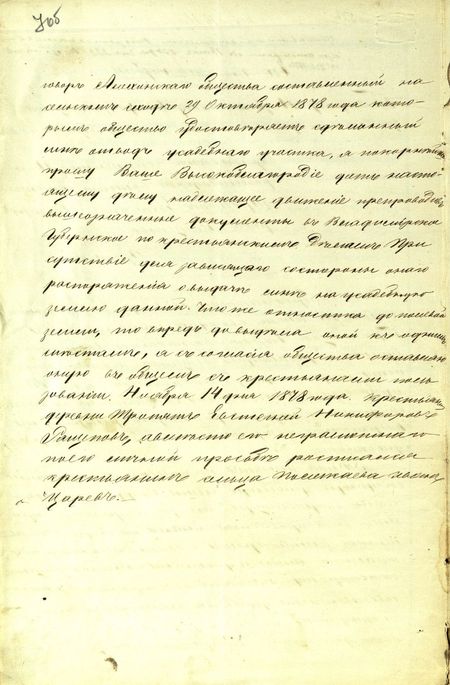 говоръ Аменскаго общества составленный на
сельскомъ сходе 29 Октября 1878 года кото-
рымъ общество удостоверяетъ сделанный
симъ отводъ усадебнаго участка, я покорнейше
прошу Ваше Высокоблагородіе дать насто-
ящему делу надлежащее движеніе препроводивъ
вышеозначенные документы въ Владимірское
Губернское по крестьянскимъ Деламъ При
сутствіе для зависящаго со стороны онаго
распоряженія о выдаче симъ на усадебную
землю данной. Что же относится до полевой
земли, то впредь до выдела оной къ одному
местамъ, я съ согласія общества оставляю
оную въ общемъ съ крестьянами поль
зованіи. Ноября 14 дня 1878 года. Крестьянинъ
деревни Евстегней Никифоровъ
а вместо его неграмотнаго
по его личной просьбе росписался
крестьянинъ сельца
Царевъ.